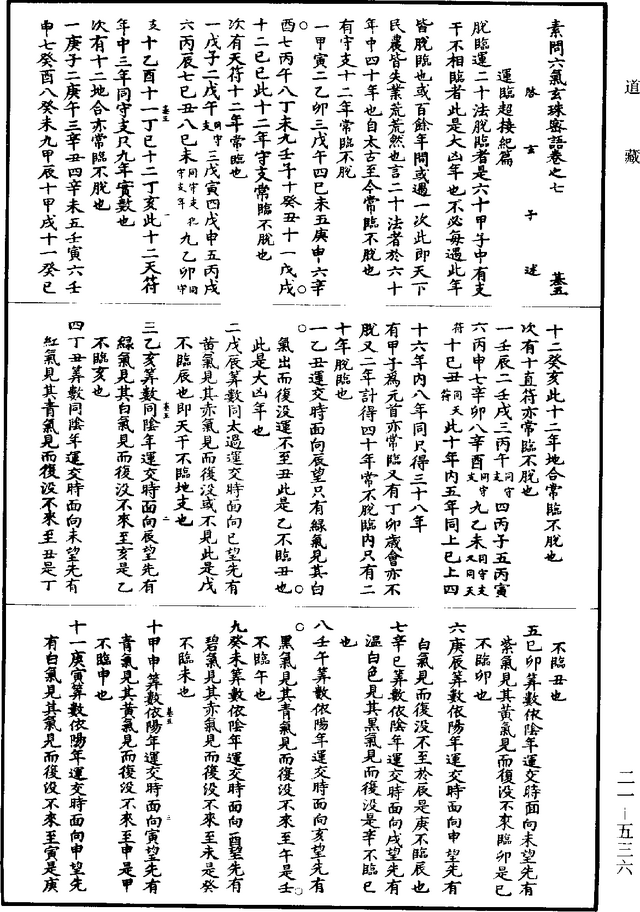 道藏
素問六氣玄珠密語卷之七 基五
啓玄子述
運臨超接紀篇
脫臨運二十法脫臨者是六十甲子中有支
干不相臨者此是大凶年也不必每遇此年
皆脫臨也或百餘年間或遇一次此即天下
民農皆失業荒荒然也言二十法者於六十
年中四十年也自太古至今常臨不脫也
有守支十二年常臨不脫
一甲寅二乙卯三戊午四巳未五庚申六辛
酉七丙午八丁未九壬子十癸丑十一戊戌
十二巳巳此十二年守支常臨不脫也
次有天符十二年常臨也
一戊子二戊午同守支三戊寅四戊申五丙戌
六丙辰七巳丑八巳未同守支九乙卯同守
支十乙酉十一丁巳十二丁亥此十二天符
年中三年同守支只九年實數也
次有十二地合亦常臨不脫也
一庚子二庚午三辛丑四辛未五壬寅六壬
申七癸酉八癸未九甲辰十甲戌十一癸巳
十二癸亥此十二年地合常臨不脫也
次有十直符亦常臨不脫也
一壬辰二壬戌三丙午同守支四丙子五丙寅
六丙申七辛卯八辛酉同守支九乙未同守支又同天
符十巳丑同天符此十年内五年同上巳上四
十六年内八年同只得三十八年
有甲子爲元首亦常臨又有丁卯歲會亦不
脫又二年計得四十年常不脫臨内只有二
十年脫臨也
一乙丑運交時面向辰望只有綠氣見其白
氣出而復没運不至丑此是乙不臨丑也
此是大凶年也
二戊辰算數同太過運交時面向巳望先有
黄氣見其赤氣見而復没或不見此是戊
不臨辰也即天干不臨地支也
三乙亥算數同陰年運交時面向辰望先有
綠氣見其白氣見而復没不來至亥是乙
不臨亥也
四丁丑算數同陰年運交時面向未望先有
紅氣見其青氣見而復没不來至丑是丁
不臨丑也
五巳卯算數依陰年運交時面向未望先有
紫氣見其黄氣見而復没不來臨卯是巳
不臨卯也
六庚辰算數依陽年運交時面向申望先有
白氣見而復没不至於辰是庚不臨辰也
七辛巳算數依陰年運交時面向戌望先有
溫白色見其黑氣見而復没是辛不臨巳
也
八壬午算數依陽年運交時面向亥望先有
黑氣見其青氣見而復没不來至午是壬
不臨午也
九癸未算數依陰年運交時面向酉望先有
碧氣見其赤氣見而復没不來至未是癸
不臨未也
十甲申算數依陽年運交時面向寅望先有
青氣見其黄氣見而復没不來至申是甲
不臨申也
十一庚寅算數依陽年運交時面向申望先
有白氣見其氣見而復没不來至寅是庚
二一－五三六